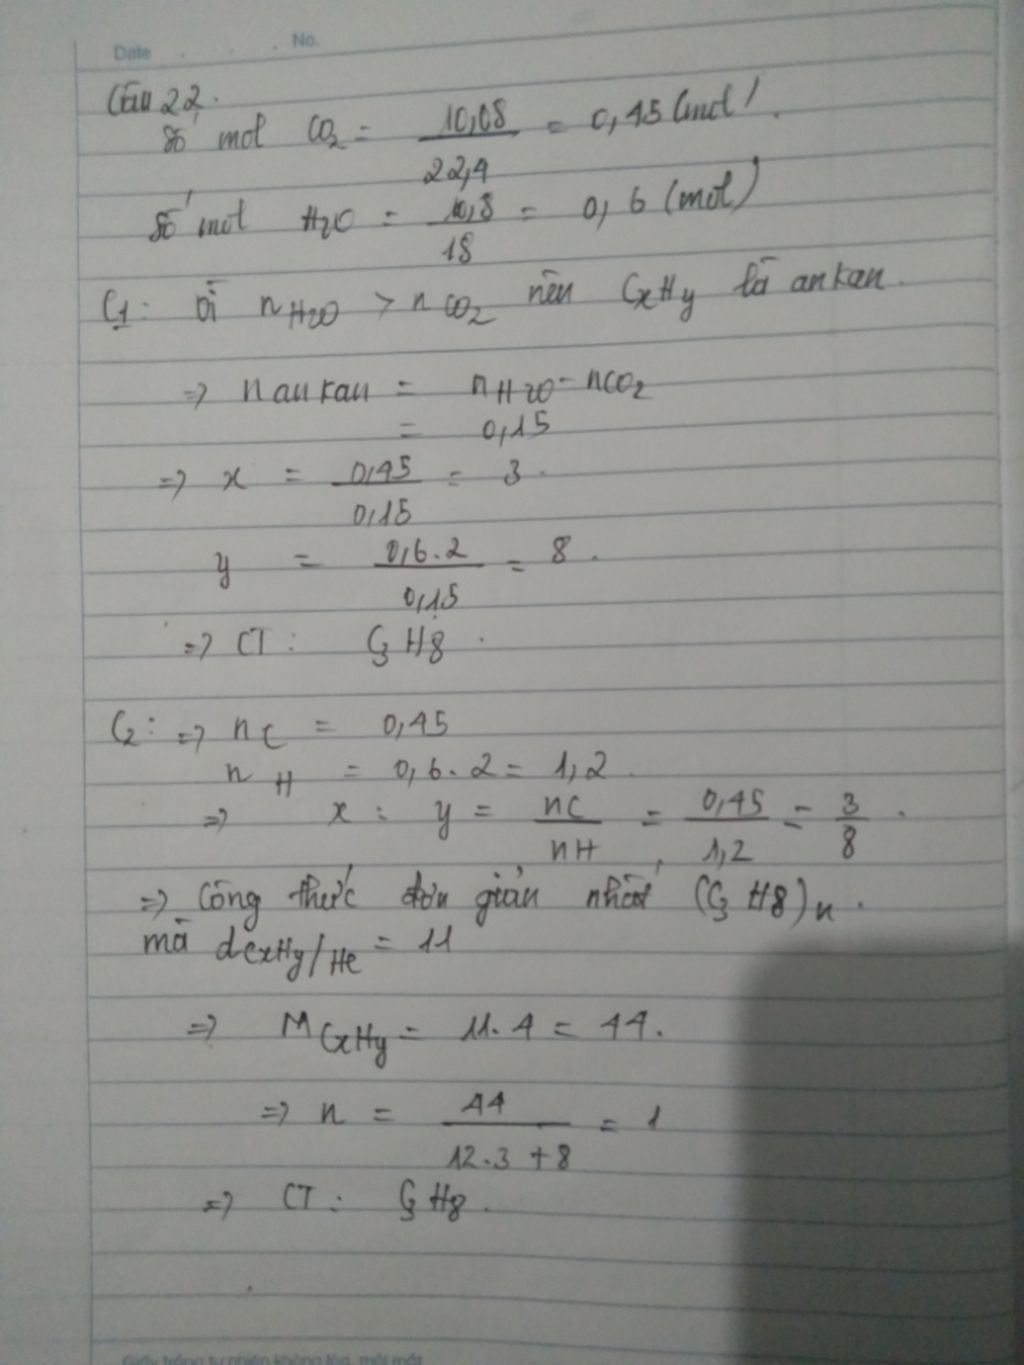 Date No.
Câu 22.
Số mol CO2 = 10,08 / 22,4 = 0,45 (mol)
Số mol H2O = 10,8 / 18 = 0,6 (mol)
C1: Vì nH2O > nCO2 nên CxHy là ankan.
=> n ankan = nH2O - nCO2
= 0,15
=> x = 0,45 / 0,15 = 3.
y = 0,6.2 / 0,15 = 8.
=> CT: C3H8.
C2: => nC = 0,45
nH = 0,6.2 = 1,2.
=> x : y = nC / nH = 0,45 / 1,2 = 3 / 8.
=> Công thức đơn giản nhất (C3H8)n.
mà dCxHy/He = 11
=> MCxHy = 11.4 = 44.
=> n = 44 / 12.3 + 8 = 1
=> CT: C3H8.
Giấy trắng tự nhiên không lóa, mỏi mắt